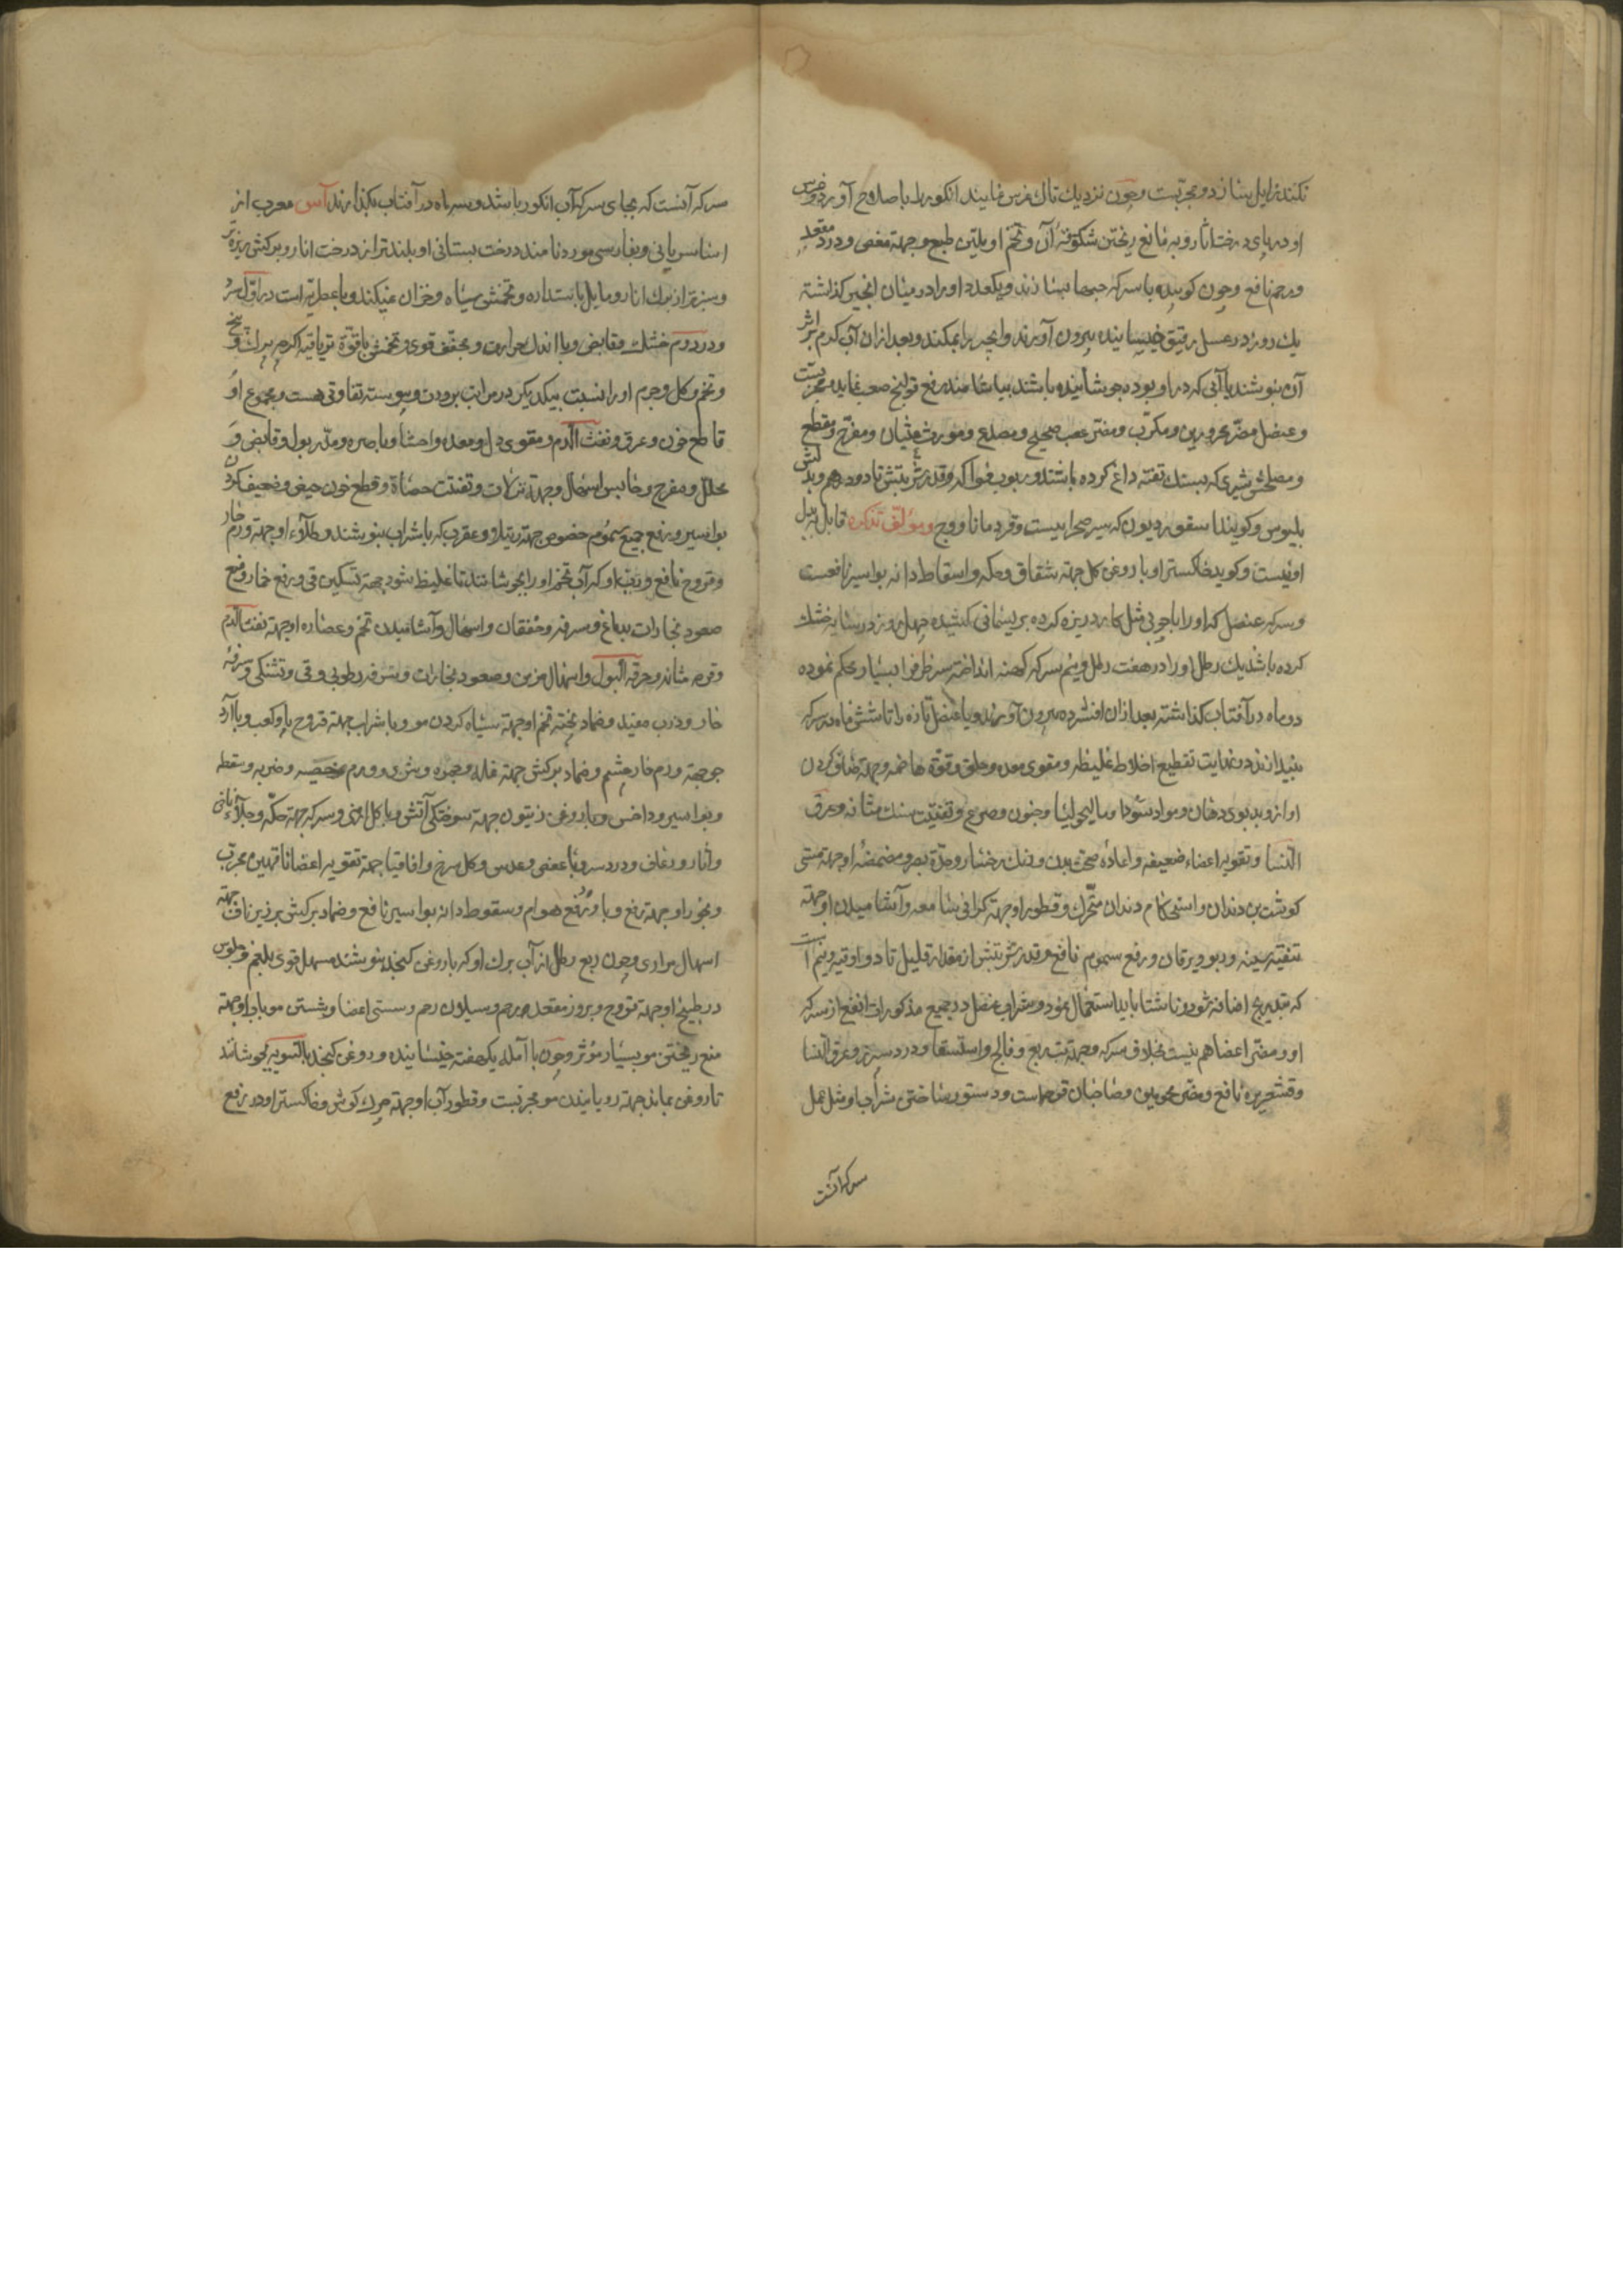 نکند زایل سازد و مجربست و چون نزدیك تاك غرس نمایند انکور را باصلاح آورد و غرس
او در پای درخت انار و به مانع ریختن شکوفهٔ آن و تخم او ملین طبع و جهة مغص و درد مقعد
و رحم نافع و چون کوبیده با سرکه حبها بسازند و یکعدد او را در میان انجیر کذاشته
یك روز در عسل رقیق خیسانیده بیرون آورند و انجیر را بمکند و بعد از ان آب کرم بر اثر
آن بنوشند یا آبی که در او بوده جوشانیده باشند بیاشامند رفع قولنج صعب نماید مجربست
و عنصل مضر محرورین و مکرب و مضر عصب صحیح و مصدع و مورث غثیان و مقرح و مقطع
و مصلحش شیری که بسنك تفته داغ کرده باشند و ربوب فواکه و قدر شربتش تا دو درهم و بدلش
بلبوس و کویند اسقوردیون که سیر صحراییست و قردمانا و وج و مؤلف تذکره قابل به بدل
او نیست و کوید خاکستر او با روغن کل جهة شقاق و حکه و اسقاط دانه بواسیر نافعست
و سرکه عنصل که او را با چوبی مثل کارد ریزه کرده بریسمانی کشیده چهل روز در سایه خشك
کرده باشند یك رطل او را در هفت رطل و نیم سرکه کهنه انداخته سر ظرف را بسیار محکم نموده
دو ماه در آفتاب کذاشته بعد از ان افشرده بیرون آورند و یا عنصل تازه را تا شش ماه در سرکه
بیندازند در غایت تقطیع اخلاط غلیظه و مقوی معده و حلق و قوة هاضمه و جهة صاف کردن
اواز و بدبوی دهان و مواد سودا و مالیخولیا و جنون و صرع و تفتیت سنك مثانه و عرق
النسا و تقویه اعضاء ضعیفه و اعاده صحت بدن و رنك رخسار و حدة بصر و مضمضه او جهة سستی
کوشت بن دندان و استحکام دندان متحرك و قطور او جهة کرانی سامعه و آشامیدن او جهة
تنقیه سینه و ربو و یرقان و رفع سموم نافع و قدر شربتش از مقدار قلیل تا دو اوقیه و نیم است
که بتدریج اضافه شود و ناشتا باید استعمال نمود و شراب عنصل در جمیع مذکورات انفع از سرکه
او و مضر اعضا هم نیست بخلاف سرکه و جهة تب ربع و فالج و استسقا و درد سپرز و عرق النسا
و قشعریره نافع و مضر محمومین و صاحبان قرحه است و دستور ساختن شراب او مثل عمل
سرکه آنست
سرکه آنست که بجای سرکه آب انکور باشد و سه ماه در آفتاب بکذارند آس معرب از
اسا سریانی و بفارسی مورد نامند درخت بستانی او بلندتر از درخت انار و برکش ریزه تر
و سبزتر از برك انار و مایل باستداره و تخمش سیاه و خزان نمیکند و با عطریه است در اول سرد
و در دوم خشك و قابض و با اندك حرارت و مجفف قوی و تخمش با قوة تریاقیه اکرچه برك و بیخ
و تخم و کل و جرم او را نسبت بیکدیکر در مراتب برودت و یبوسته تفاوتی هست و مجموع او
قاطع خون و عرق و نفث الدم و مقوی دل و معده و احشا و باصره و مدر بول و قابض و
محلل و مفرح و حابس اسهال و جهة نزلات و تفتیت حصاة و قطع خون حیض و ضعیف کردن
بواسیر و رفع جمیع سموم خصوص جهة رتیلا و عقرب که با شراب بنوشند و طلاء او جهة ورم حار
و قروح نافع و رب او که آب تخم او را بجوشانند تا غلیظ شود جهة تسکین قی و رفع خمار و منع
صعود بخارات بدماغ و سرفه و خفقان و اسهال و آشامیدن تخم و عصاره او جهة نفث الدم
و قرحه مثانه و حرقة البول و اسهال مزمن و صعود بخارات و سرفه رطوبی و قی و تشنکی و سرفه
حار و ذرب مفید و ضماد پخته تخم او جهة سیاه کردن مو و با شراب جهة قروح پا و کعب و با آرد
جو جهة ورم حار چشم و ضماد برکش جهة نمله و جمره و شری و ورم خصیه و ضربه و سقطه
و بواسیر و داخس و با روغن زیتون جهة سوختکی آتش و با کل ارمنی و سرکه جهة حکه و جلاء
و آثار و رعاف و درد سر و با عفص و عدس و کل سرخ و اقاقیا جهة تقویه اعضا ناقهین مجرب
و بخور او جهة و با و رفع هوام و سقوط دانه بواسیر نافع و ضماد برکش بر زیر ناف جهة
اسهال مراری و چون ربع رطل از آب برك او که با روغن کنجد بنوشند مسهل قوی بلغم و جلوس
در طبیخ او جهة قروح و بروز مقعد و رحم و سیلان رحم و سستی اعضا و شستن مو باب او جهة
منع ریختن مو بسیار مؤثر و چون با آمله یکهفته خیسانیده و روغن کنجد بالسویه بجوشانند
تا روغن بماند جهة رویانیدن مو مجربست و قطور آب او جهة چرك کوش و خاکستر او در رفع